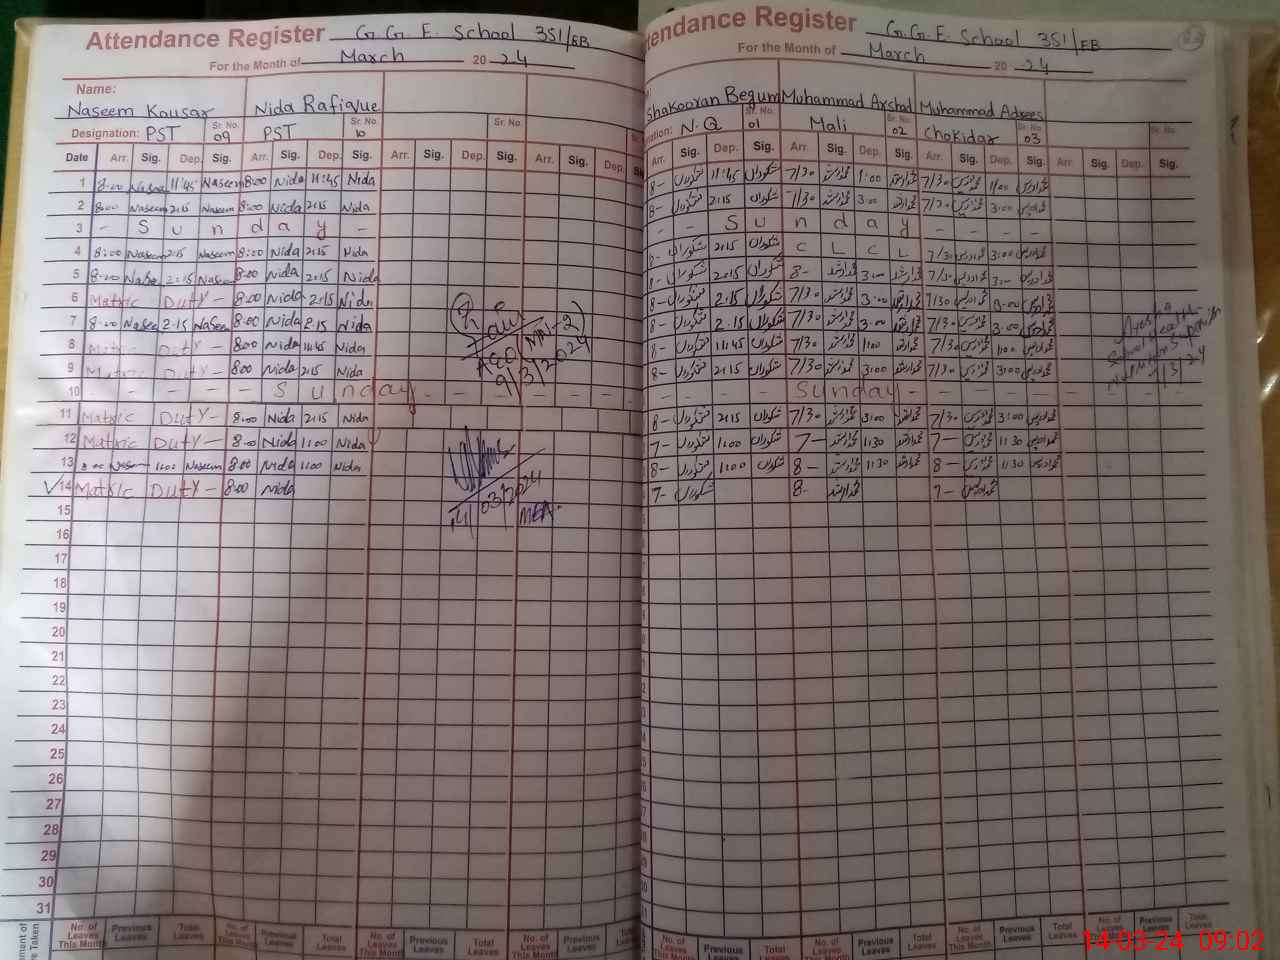 Attendance Register G.G.E. School 351/EB
For the Month of March 20 24
Name:
Naseem Kousar Nida Rafique
Designation: PST Sr. No. 09 PST Sr. No. 10 Sr. No.
Date Arr. Sig. Dep. Sig. Arr. Sig. Dep. Sig. Arr. Sig. Dep. Sig. Arr. Sig. Dep.
1 8:00 Naseem 11:45 Naseem 8:00 Nida 11:45 Nida
2 8:00 Naseem 2:15 Naseem 8:00 Nida 2:15 Nida
3 - S u n d a y -
4 8:00 Naseem 2:15 Naseem 8:00 Nida 2:15 Nida
5 8:00 Naseem 2:15 Naseem 8:00 Nida 2:15 Nida
6 Matric Duty - 8:00 Nida 2:15 Nida
7 8:00 Naseem 2:15 Naseem 8:00 Nida 2:15 Nida
8 Matric Duty - 8:00 Nida 11:45 Nida
9 Matric Duty - 8:00 Nida 2:15 Nida
10 - - - - - S u n d a y - - - - - -
11 Matric Duty - 8:00 Nida 2:15 Nida
12 Matric Duty - 8:00 Nida 11:00 Nida
13 8:00 Naseem 11:00 Naseem 8:00 Nida 11:00 Nida
14 Matric Duty - 8:00 Nida
15
16
17
18
19
20
21
22
23
24
25
26
27
28
29
30
31
AEO (MN-2)
9/3/2024
14/03/2024
MEA.
No. of Leaves This Month Previous Leaves Total Leaves No. of Leaves This Month Previous Leaves Total Leaves No. of Leaves This Month Previous Leaves Total Leaves No. of Leaves This Month Previous Leaves
tendance Register G.G.E. School 351/EB
For the Month of March 20 24
Shakooran Begum Muhammad Arshad Muhammad Adrees
nation: N.Q Sr. No. 01 Mali Sr. No. 02 Chokidar Sr. No. 03 Sr. No.
Arr. Sig. Dep. Sig. Arr. Sig. Dep. Sig. Arr. Sig. Dep. Sig. Arr. Sig. Dep. Sig.
8- شکوراں 11:45 شکوراں 7/30 محمد ارشد 1:00 محمد ارشد 7/30 محمد ادریس 1:00 محمد ادریس
8- شکوراں 2:15 شکوراں 7/30 محمد ارشد 3:00 محمد ارشد 7/30 محمد ادریس 3:00 محمد ادریس
- - S u n d a y - - - -
8- شکوراں 2:15 شکوراں C L C L 7/30 محمد ادریس 3:00 محمد ادریس
8- شکوراں 2:15 شکوراں 8- محمد ارشد 3:00 محمد ارشد 7/30 محمد ادریس 3:00 محمد ادریس
8- شکوراں 2:15 شکوراں 7/30 محمد ارشد 3:00 محمد ارشد 7/30 محمد ادریس 3:00 محمد ادریس
8- شکوراں 2:15 شکوراں 7/30 محمد ارشد 3:00 محمد ارشد 7/30 محمد ادریس 3:00 محمد ادریس
8- شکوراں 11:45 شکوراں 7/30 محمد ارشد 1:00 محمد ارشد 7/30 محمد ادریس 1:00 محمد ادریس
8- شکوراں 2:15 شکوراں 7/30 محمد ارشد 3:00 محمد ارشد 7/30 محمد ادریس 3:00 محمد ادریس
- - - - Sunday - - - - - - - -
8- شکوراں 2:15 شکوراں 7/30 محمد ارشد 3:00 محمد ارشد 7/30 محمد ادریس 3:00 محمد ادریس
7- شکوراں 11:00 شکوراں 7- محمد ارشد 11:30 محمد ارشد 7- محمد ادریس 11:30 محمد ادریس
8- شکوراں 11:00 شکوراں 8- محمد ارشد 11:30 محمد ارشد 8- محمد ادریس 11:30 محمد ادریس
7- شکوراں 8- محمد ارشد 7- محمد ادریس
Ayesha
School Health
No. of Leaves This Month Previous Leaves Total Leaves No. of Leaves This Month Previous Leaves Total Leaves No. of Leaves This Month Previous Leaves Total Leaves No. of Leaves This Month Previous Leaves Total Leaves
14-03-24 09:02